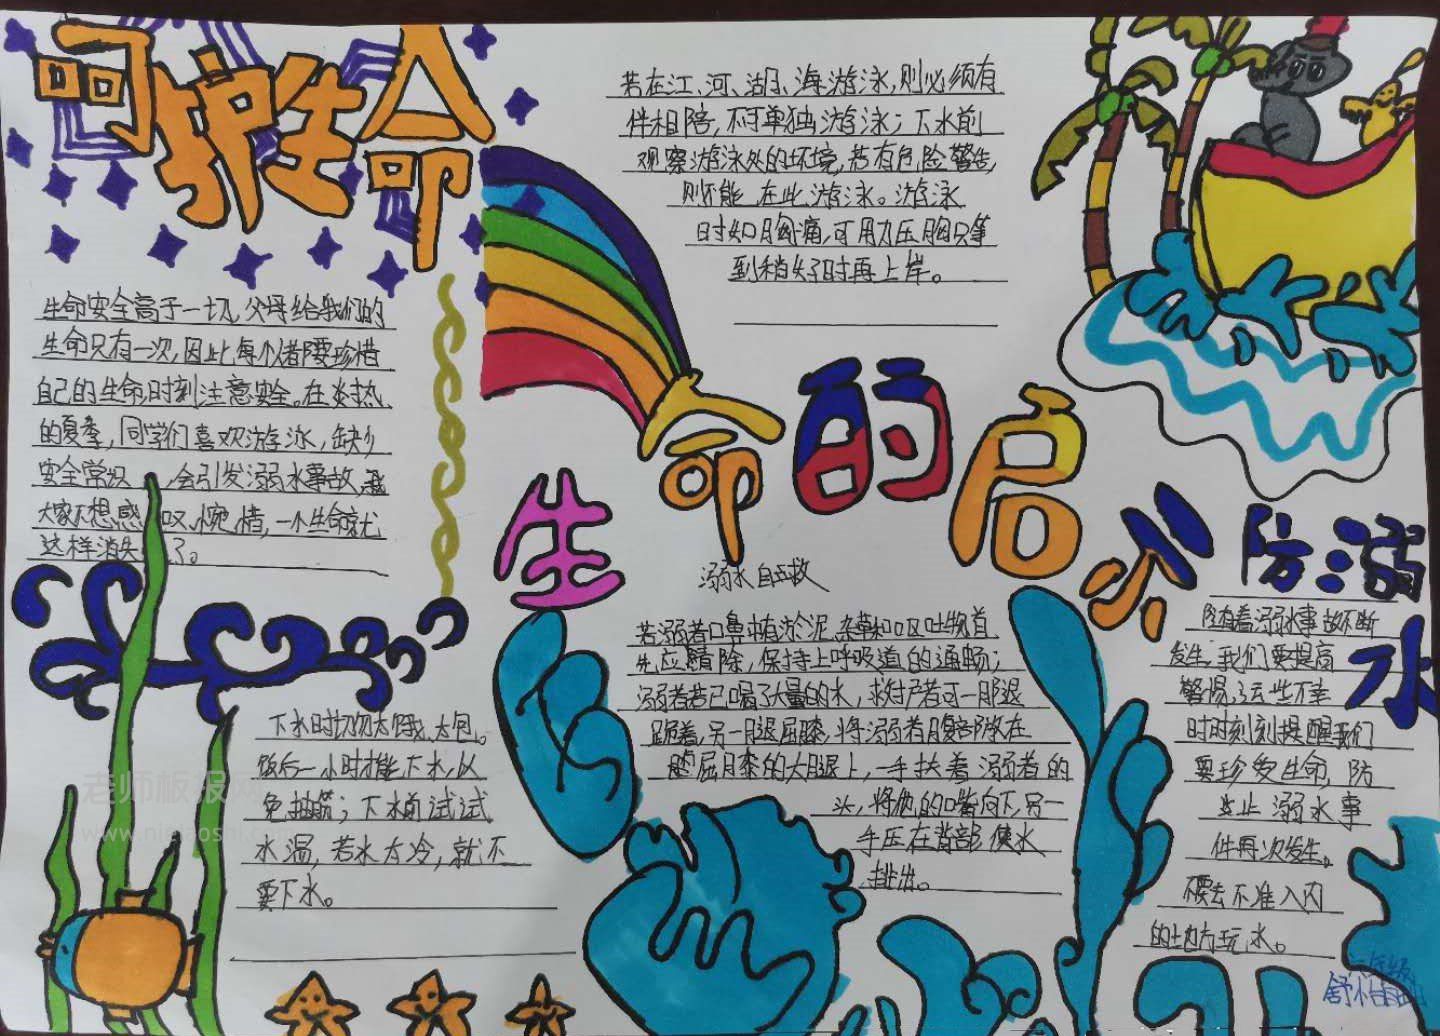 呵护生命
生命安全高于一切,父母给我们的
生命只有一次,因此,每个人都要珍惜
自己的生命,时刻注意安全。在炎热
的夏季,同学们喜欢游泳,缺少
安全常识,会引发溺水事故,
大家不想感叹,惋惜,一个生命就
这样消失了。
若在江、河、湖、海游泳,则必须有
伴相陪,不可单独游泳;下水前
观察游泳处的环境,若有危险警告,
则不能在此游泳。游泳
时如胸痛,可用力压胸口等
到稍好时再上岸。
生命的启示
溺水自救
若溺者口鼻中有淤泥,杂草和呕吐物首
先应清除,保持上呼吸道的通畅;
溺者若已喝了大量的水,救护者可一腿
跪着,另一腿屈膝,将溺者腹部放在
屈膝的大腿上,一手扶着溺者的
头,将他的嘴向下,另一
手压在背部使水
排出。
下水时切勿太饿、太饱。
饭后一小时才能下水,以
免抽筋;下水前试试
水温,若水太冷,就不
要下水。
防溺水
随着溺水事故不断
发生,我们要提高
警惕,这些不幸
时时刻刻提醒我们
要珍爱生命,防
止溺水事
件再次发生。
不要去不准入内
的地方玩水。
老师板报网